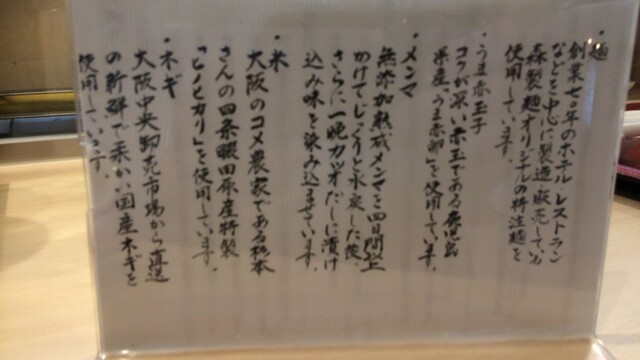 ・麺
創業七〇年のホテル、レストラン
などを中心に製造・販売している
森製麺オリジナルの特注麺を
使用しています。
・うま赤玉子
コクが深い赤玉である鹿児島
県産「うま赤卵」を使用しています。
・メンマ
無添加熟成メンマを四日間以上
かけてじっくりと水戻した後、
さらに一晩カツオだしに漬け
込み味を染み込ませています。
・米
大阪のコメ農家である杉本
さんの四条畷田原産特製
「ヒノヒカリ」を使用しています。
・ネギ
大阪中央卸売市場から直送
の新鮮で柔かい国産ネギを
使用しています。